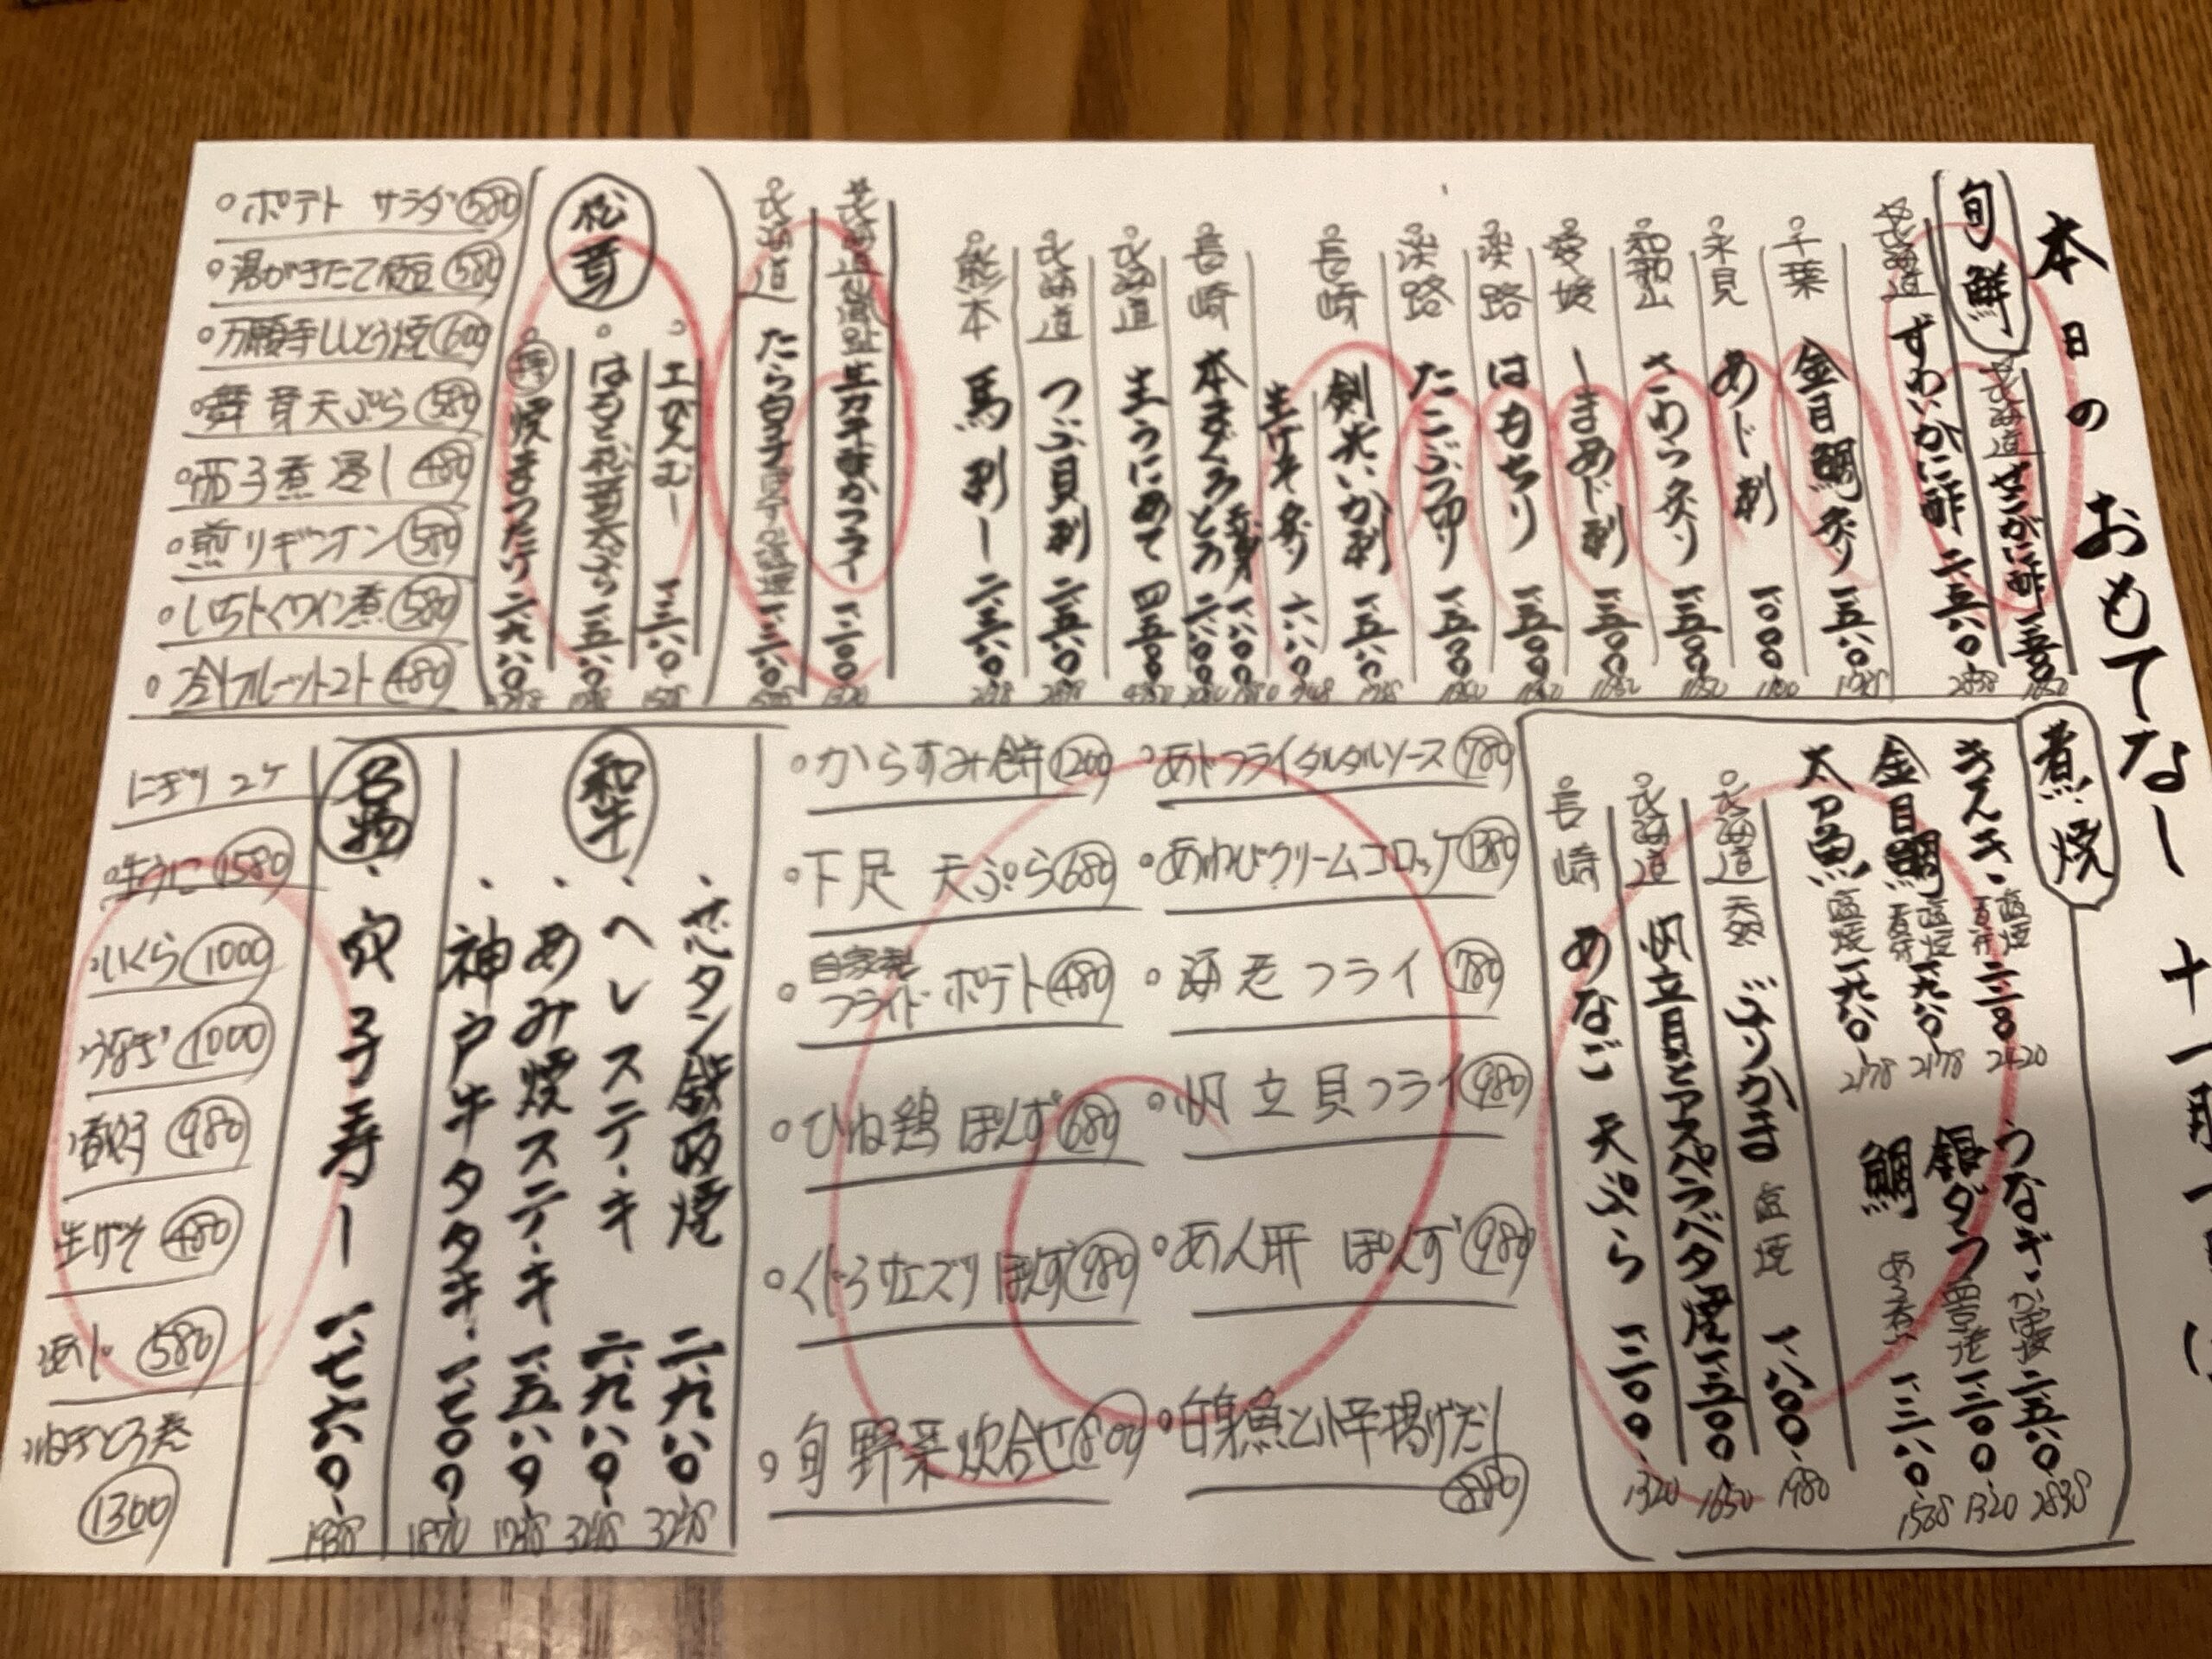 本日のおもてなし 十一月
旬鮮
北海道 せこがに酢 一、五〇〇 1650
北海道 ずわいかに酢 二、五八〇 2838
千葉 金目鯛炙り 一、五八〇 1738
氷見 あじ刺 一、〇〇〇 1100
和歌山 さわら炙り 一、五〇〇 1650
愛媛 しまあじ刺 一、五〇〇
淡路 はもちり 一、五〇〇
淡路 たこぶつ切り 一、五〇〇
長崎 剣先いか刺 一、五八〇 1738
生げそ炙り 六八〇 748
長崎 本まぐろ とろ 二、六〇〇
赤身 一、八〇〇
北海道 生うにあて 四、五〇〇
北海道 つぶ貝刺 二、五八〇
熊本 馬刺し 二、三八〇
生カキ酢かフライ 一、二〇〇 1320
北海道 たら白子 一、三八〇
松茸
土びんむし 一、三八〇
はもと松茸天ぷら 一、五八〇
焼まつたけ 二、九八〇
・ポテトサラダ 580
・湯がきたて枝豆 580
・万願寺ししとう焼 600
・舞茸天ぷら 580
・茄子煮浸し 480
・煎りギンナン 580
・いちじくワイン煮 580
・冷しフルーツトマト 480
煮焼
きんき 塩焼 煮付 二、二〇〇 2420
金目鯛 塩焼 煮付 一、九八〇 2178
太刀魚 塩焼 一、九八〇 2178
うなぎ かば焼 二、五八〇 2838
銀ダラ 西京漬 一、二〇〇 1320
鯛 あら煮 一、三八〇 1518
北海道 天然 ぶりかま 塩焼 一、八〇〇 1980
北海道 帆立貝とアスパラバター焼 一、五〇〇 1650
長崎 めなご天ぷら 一、二〇〇 1320
・あじフライタルタルソース 780
・あわびクリームコロッケ 1380
・海老フライ 780
・帆立貝フライ 980
・あん肝ぽんず 980
・白身魚と小芋揚げだし 880
・からすみ餅 1200
・下足天ぷら 680
・自家製フライドポテト 480
・ひね鶏ぽんず 680
・くじらサエズリぽんず 980
・旬野菜炊合せ 800
和牛
・芯タン鉄板焼 二、九八〇 3278
・ヘレステーキ 二、九八〇 3278
・あみ焼ステーキ 一、五八〇 1738
・神戸牛タタキ 一、七〇〇 1870
名物
・穴子寿し 一、七六〇 1936
にぎり 2ケ
・生うに 1580
・いくら 1000
・うなぎ 1000
980
・生げそ 480
580
・ねぎとろ巻 1300